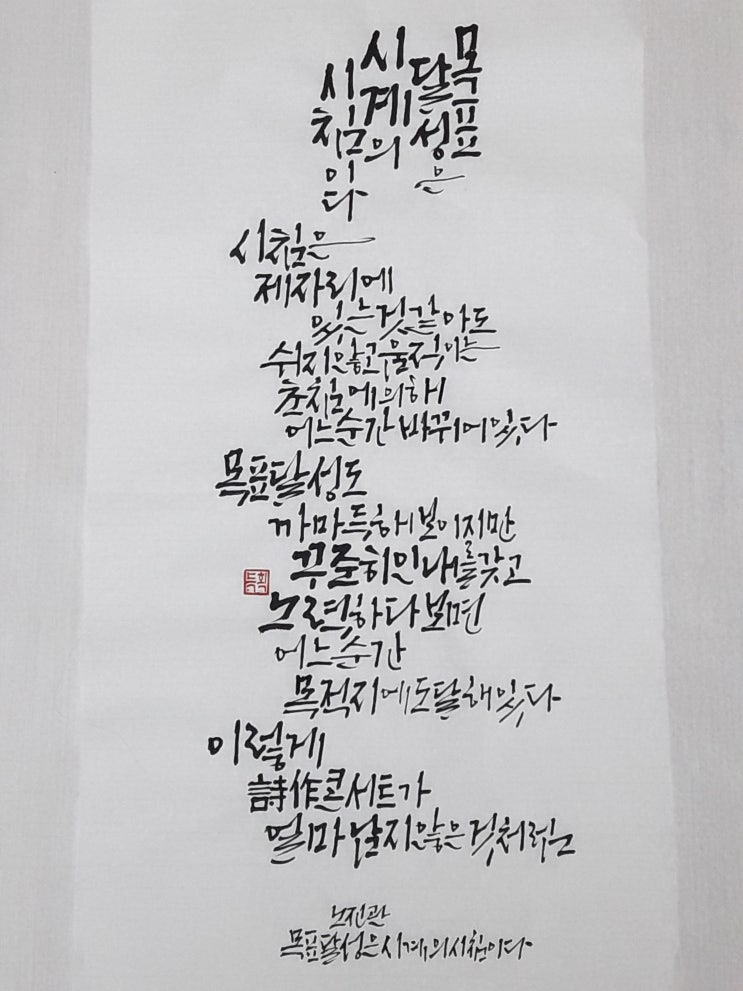 목표
달성은
시계의
시침이다
시침은
제자리에
있는것같아도
쉬지않고움직이는
초침에의해
어느순간바뀌어있다
목표달성도
까마득해보이지만
꾸준히인내를갖고
노력하다보면
어느순간
목적지에도달해있다
이렇게
詩作콘서트가
얼마남지않은것처럼
노진관
목표달성은시계의시침이다